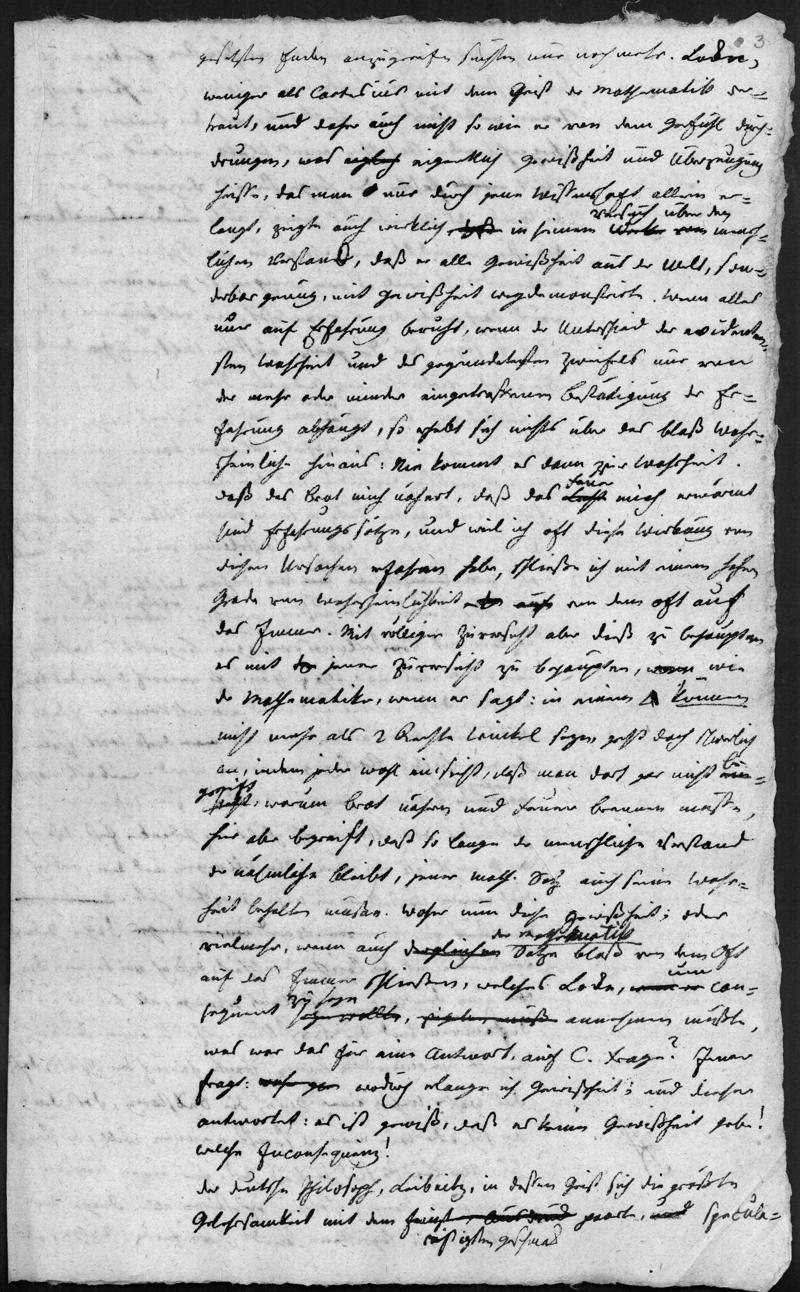 3
gesetzten Enden anzugreifen suchten nur noch mehr. Locke,
weniger als Cartesius mit dem Geist der Mathematik ver=
traut, und daher auch nicht so wie er von dem Gefühl durch=
drungen, was eigentlich Gewißheit und Überzeugung
heisse, das man nur durch jene Wissenschaft allein er=
langt, zeigte auch wirklich in seinem Versuch über den mensch=
lichen Verstand, daß er alle Gewißheit aus der Welt, son=
derbar genung, mit Gewißheit wegdemonstrirte. Wenn alles
nur auf Erfahrung beruht, wenn der Unterschied der evidente=
sten Wahrheit und des gegründetesten Zweifels nur von
der mehr oder minder eingetroffenen Bestätigung der Er=
fahrung abhängt, so erhebt sich nichts über das blaß Wahr=
scheinliche hinaus: Nie kommt es dann zur Wahrheit.
daß das Brot mich nähret, daß das Feuer mich erwärmt
sind Erfahrungssätze, und weil ich oft diese Wirkung von
diesen Ursachen erfahren habe, schließe ich mit einem hohen
Grade von Wahrscheinlichkeit von dem oft auf
das Immer. Mit völliger Zuversicht aber dieß zu behaupten
es mit jener Zuversicht zu behaupten, wie
der Mathematiker, wenn er sagt: in einem Δ können
nicht mehr als 2 Rechte Winkel seyn geht doch schwerlich
an, indem jeder wohl einsieht, daß man dort gar nicht be=
greift, warum Brot nähren und Feuer brennen müsse,
hier aber begreift, daß so lange der menschliche Verstand
der nämliche bleibt, jener math. Satz auch seine Wahr=
heit behalten müsse. Woher nun diese Gewißheit; oder
vielmehr, wenn auch der Mathematik Sätze blaß von dem Oft
auf das Immer schließen, welches Locke, um con=
sequent zu seyn annehmen müßte,
was war das für eine Antwort, auf C. Frage? Jener
fragt: wodurch erlange ich Gewißheit; und dieser
antwortet: es ist gewiß, daß es keine Gewißheit gebe!
welche Inconsequenz!
der deutsche Philosoph, Leibnitz, in dessen Geist sich die größte
Gelehrsamkeit mit dem paarte, specula=